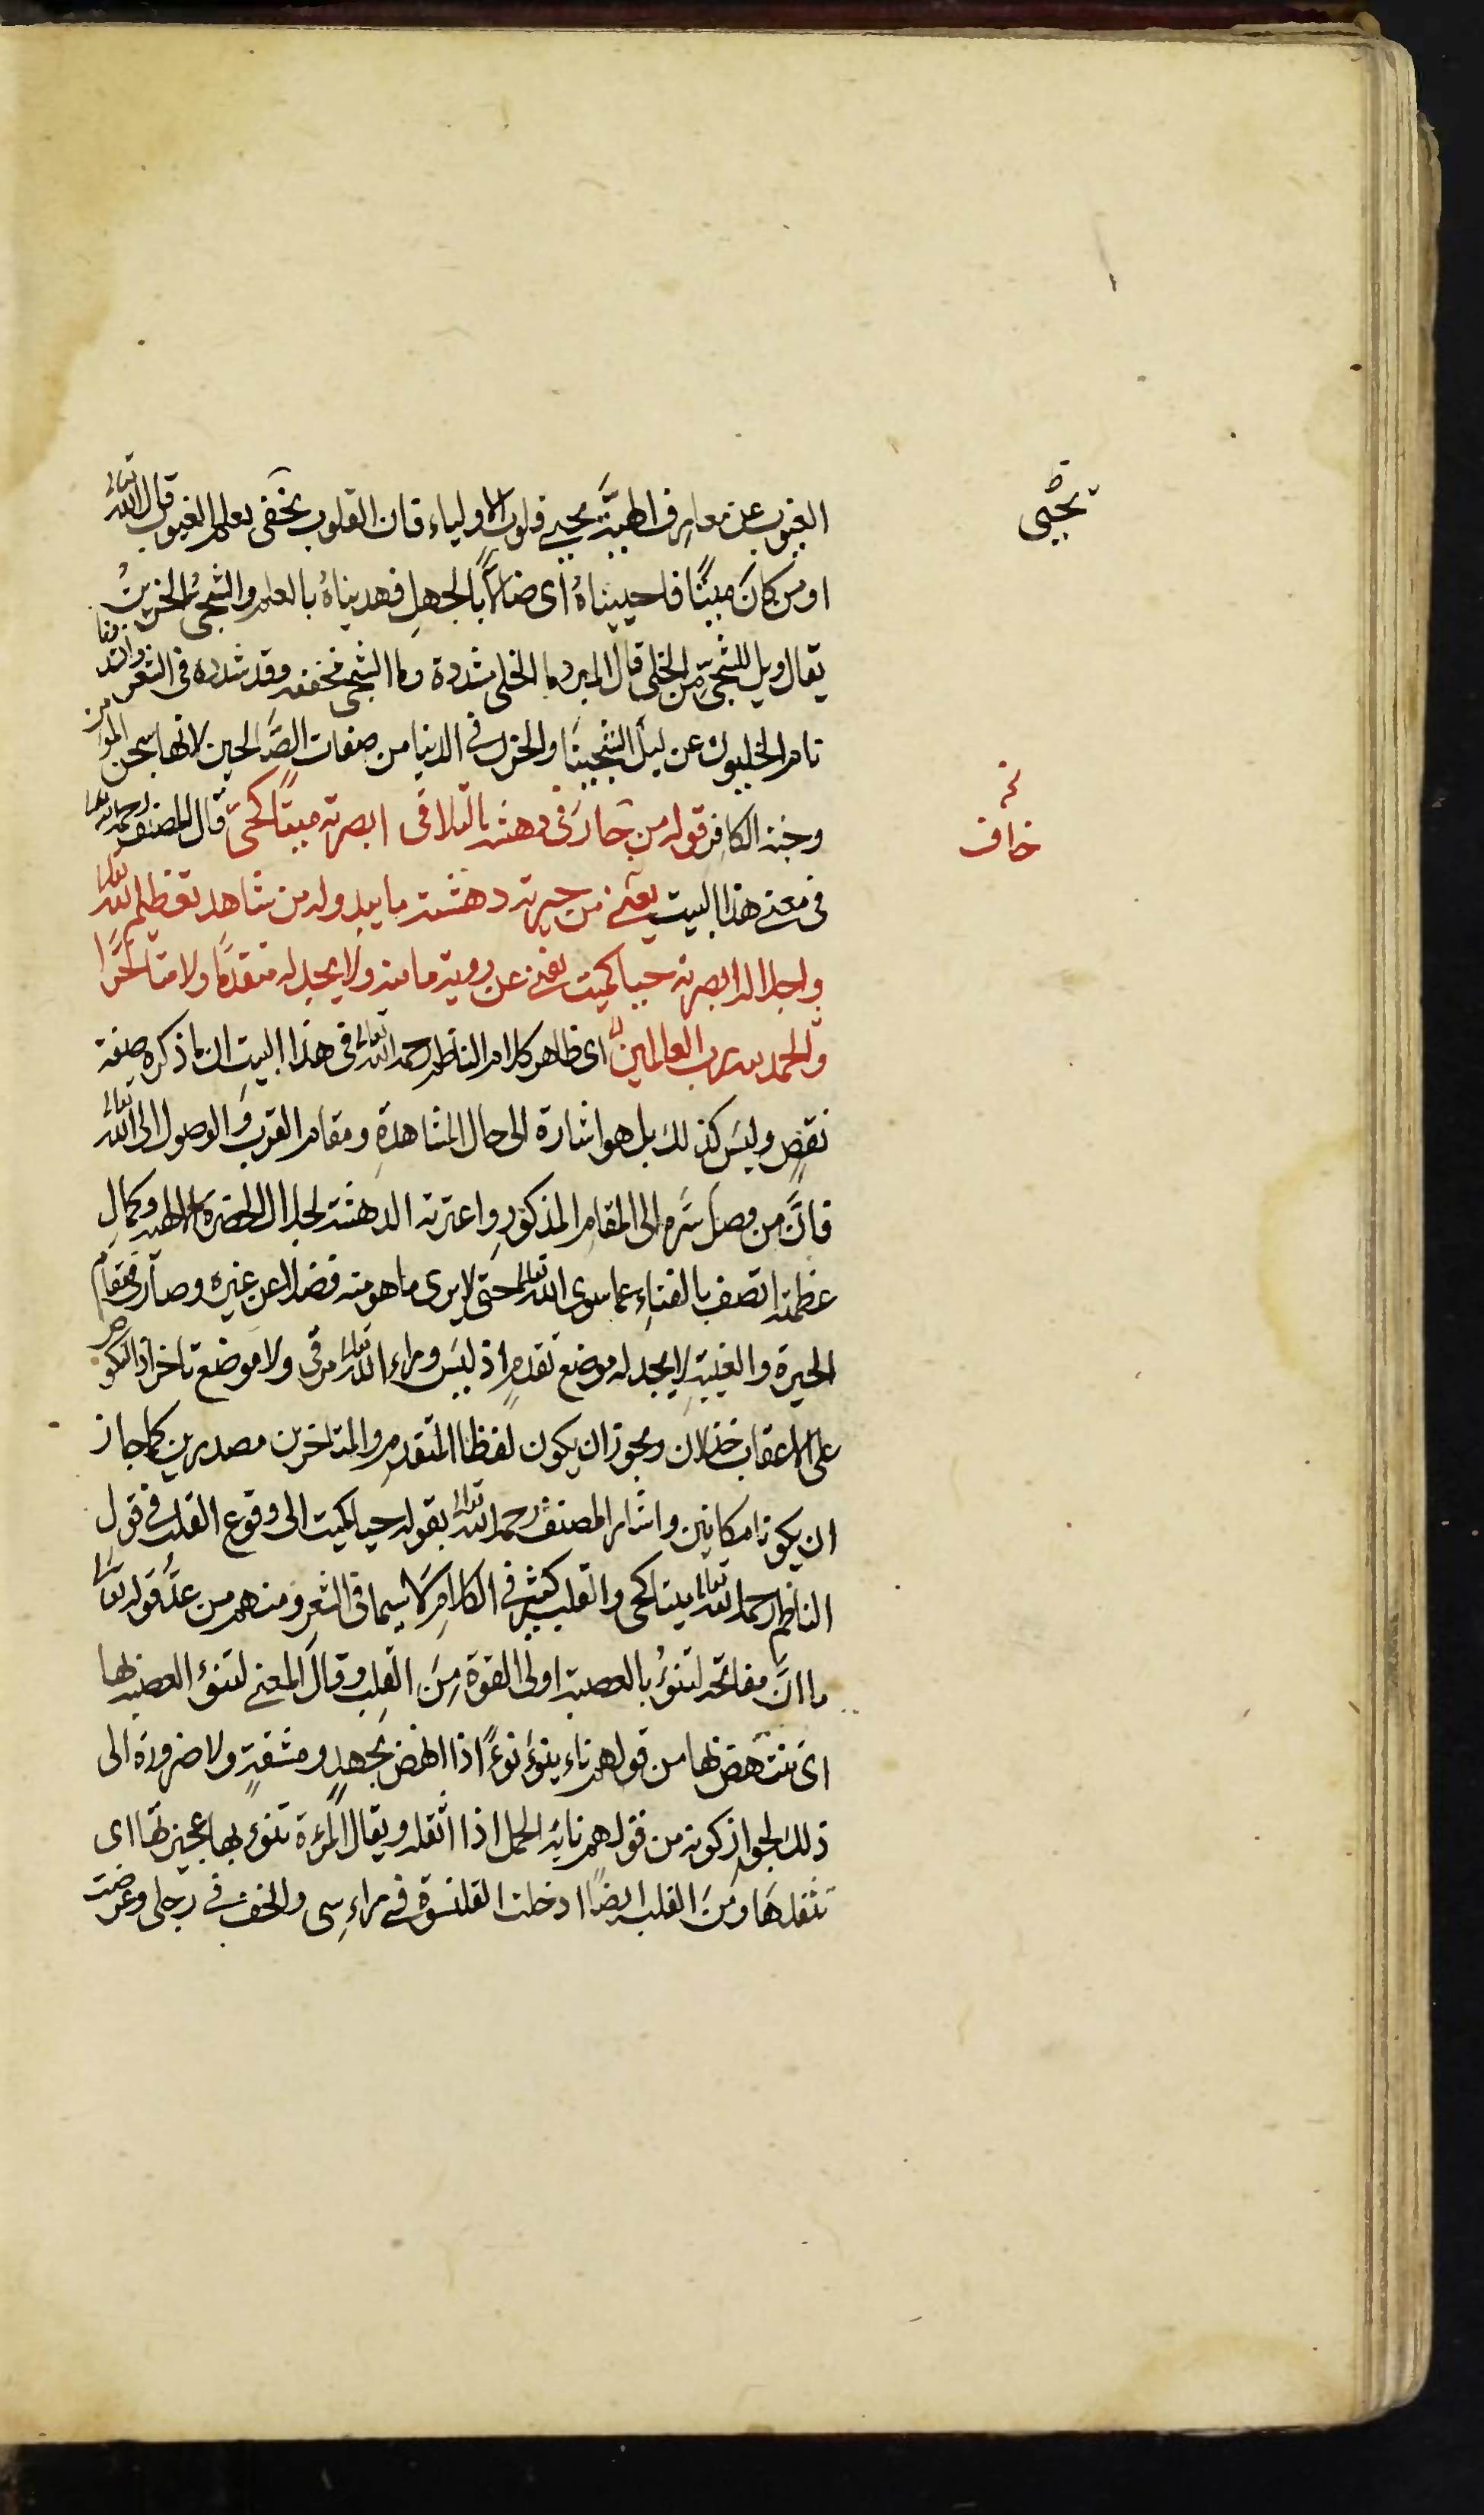 الغيوب عن معارف اطيبة يحيى قلوب الاولياء فان القلوب تحيى بعلم الغيوب قال الله تعالى
او من كان ميتًا فاحييناهُ اى ضالًّا بالجهلِ فهديناهُ بالعلم والشجىُّ الحزينُ
يقال ويل للشجىّ من الخلى قال المبرد يا الخلى مشددة ويا الشجى مخففه وقد شدده فى الشعر وانشد
نام الخليون عن ليل الشجيينا والحزن فى الدنيا من صفات الصَّالحين لانها سجن المؤمن
وجنة الكافر قوله من حار فى دهشة التلاقى ابصرته ميتًا كحىّ قال المصنف رحمه الله
فى معنى هذا البيت يعنى من حيرته دهشة ما يبدو له من شاهد تعظيم الله تعالى
واجلاله ابصرته حيا كميت يفنى عن روية ما منه ولا يجد له متقدمًا ولا متاخرًا
والحمد لله رب العالمين اى ظاهر كلام الناظم رحمه الله تعالى فى هذا البيت ان ما ذكره صفة
نقصٍ وليس كذلك بل هو اشارة الى حال المشاهدةِ ومقام القرب والوصول الى الله تعالى
فانَّ من وصل سَرَّه الى المقام المذكورِ واعترته الدهشة لجلال الحضرة الالهية وكمالِ
عظمته اتصف بالفناءِ عما سوى الله تعالى حتى لا يرى ما هو منه فضلا عن غيره وصار فى مقام
الحيرة والغيبةِ لا يجد له موضع تقدمٍ اذ ليس وراء الله تعالى مرقى ولا موضع تاخر اذ النكوص
على الاعقاب خذلان ويجوز ان يكون لفظا المتقدم والمتاخر مصدرين كما جاز
ان يكونا مكانين واشار المصنف رحمه الله تعالى بقوله حيا كميت الى وقوع القلب فى قول
الناظم رحمه الله تعالى ميتا كحى والقلب كثير فى الكلام لا سيما فى الشعر ومنهم من عدَّ قوله تعالى
ما انَّ مفاتحه لتنوُءُ بالعصبة اولى القوة مِنَ القلب وقال المعنى لتنؤ العصبة بها
اى تنتهض بها من قولهم ناء ينوء نوءً اذا نهض بجهدٍ ومشقةٍ ولا ضرورة الى
ذلك لجواز كونه من قولهم ناء به الحمل اذا اثقله ويقال المرءة تنوء بها عجيزتها اى
تثقلها ومن القلب ايضًا ادخلت القلنسوة فى راءسى والخف فى رجلى وعرضت
تحيى
خاف